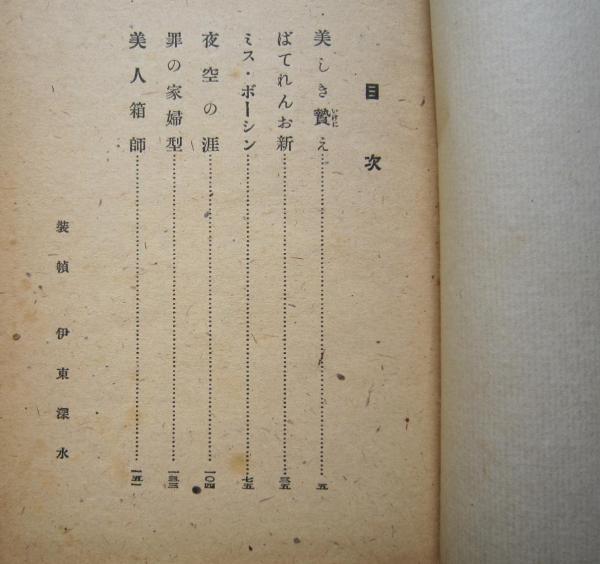 目次
美しき贄え……五
ばてれんお新……三五
ミス・ボーシン……七五
夜空の涯……一〇四
罪の家婦型……一三三
美人箱師……一五一
装幀 伊東深水